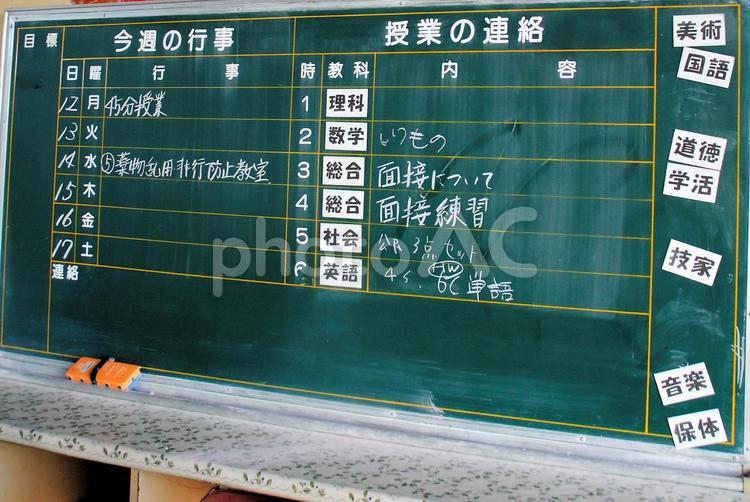 目標
今週の行事
授業の連絡
日 曜 行事
時 教科 内容
12 月 45分授業
13 火
14 水 ⑤薬物乱用非行防止教室
15 木
16 金
17 土
連絡
1 理科
2 数学 いつもの
3 総合 面接について
4 総合 面接練習
5 社会 公民 3点セット
6 英語 単語
美術
国語
道徳
学活
技家
音楽
保体
photoAC